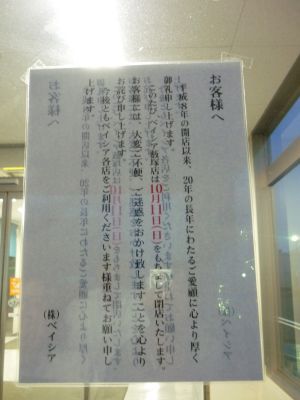 お客様へ
平成8年の開店以来、20年の長年にわたるご愛顧に心より厚く
御礼申し上げます。
このたび、ベイシア薮塚店は10月11日(日)をもちまして閉店いたします。
お客様には、大変ご不便、ご迷惑をおかけ致しますことを心より
お詫び申し上げます。
今後ともベイシア各店をご利用くださいます様重ねてお願い申し
上げます。
(株)ベイシア